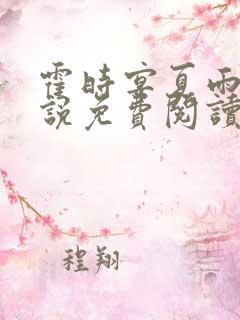 霍時宴夏雨
說免費閱讀
程翔